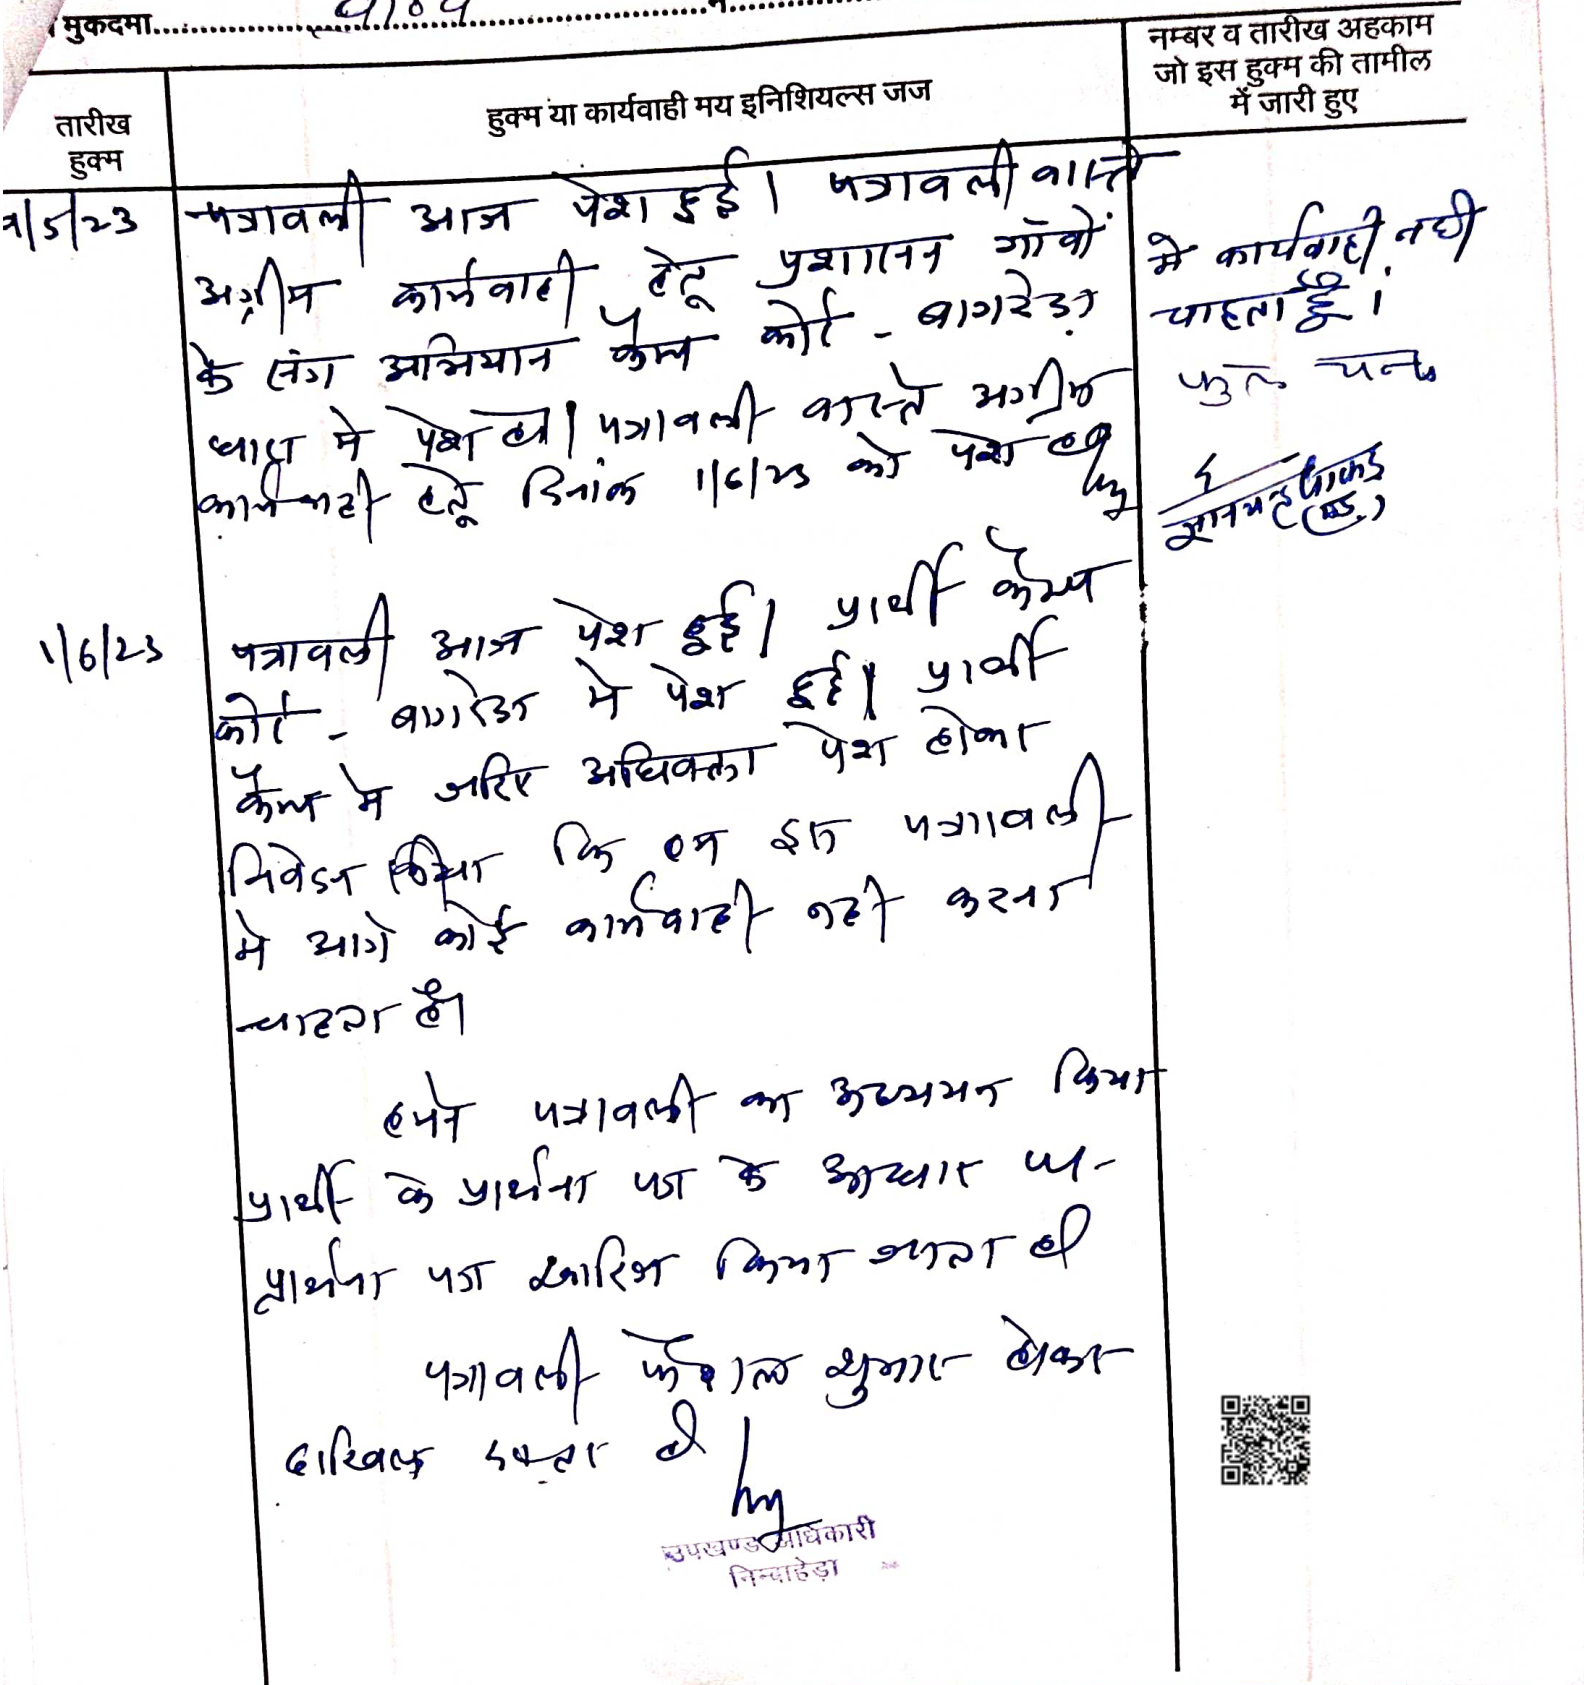 मुकदमा
तारीख हुक्म
हुक्म या कार्यवाही मय इनिशियल्स जज
नम्बर व तारीख अहकाम
जो इस हुक्म की तामील
में जारी हुए
/5/23
पत्रावली आज पेश हुई। पत्रावली वास्ते
अग्रीम कार्यवाही हेतू प्रशासन गॉवों
के संग अभियान कैम्प कोर्ट - बागरेडा
में पेश हो। पत्रावली वास्ते अग्रीम
कार्यवाही हेतू दिनांक 1/6/23 को पेश हो
मे कार्यवाही नही
चाहता हूँ।
फुल चन्द
1/6/23
पत्रावली आज पेश हुई। प्रार्थी कैम्प
कोर्ट - बागरेडा मे पेश हुई। प्रार्थी
कैम्प मे जरिए अधिवक्ता पेश होकर
निवेदन किया कि हम इस पत्रावली
मे आगे कोई कार्यवाही नही करना
चाहता है।
हमने पत्रावली का अध्ययन किया
प्रार्थी के प्रार्थना पत्र के आधार पर
प्रार्थना पत्र खारिज किया जाता है
पत्रावली फैशल शुमार होकर
दाखिल दफ्तर हो
उपखण्ड अधिकारी
निम्बाहेड़ा